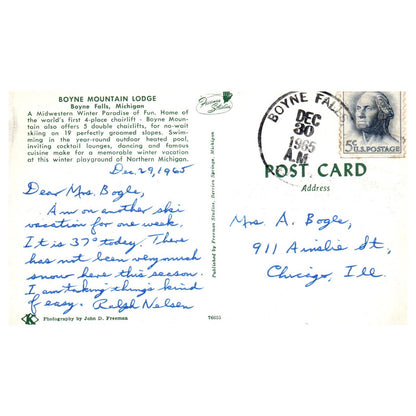 BOYNE MOUNTAIN LODGE
Boyne Falls, Michigan
A Midwestern Winter Paradise of Fun. Home of
the world's first 4-place chairlift - Boyne Moun-
tain also offers 5 double chairlifts, for no-wait
skiing on 19 perfectly groomed slopes. Swim-
ming in the year-round outdoor heated pool,
inviting cocktail lounges, dancing and famous
cuisine make for a memorable winter vacation
at this winter playground of Northern Michigan.
Dec. 29, 1965
Dear Mrs. Bogle,
Am on another ski
vacation for one week.
It is 37° today. There
has not been very much
snow here this season.
I am taking things kind
of easy. Ralph Nelsen
K
Photography by John D. Freeman
76055
Published by Penrod Studios, Berrien Springs, Michigan
Penrod
Studios
BOYNE FALLS
DEC
30
1965
A.M.
5c U.S. POSTAGE
POST CARD
Address
Mrs. A. Bogle,
911 Ainslie St,
Chicago, Ill.